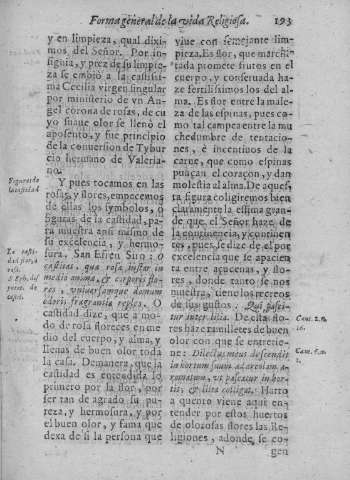 Forma general de la vida Religiosa. 193
y en limpieza, qual dixi-
mos del Señor. Por in-
signia, y prez de su limpie-
za se embiò a la castissi-
ma Cecilia virgen singular
por ministerio de vn An-
gel corona de rosas, de cu
yo suaue olor se llenò el
aposento, y fue principio
de la conuersion de Tybur
cio hermano de Valeria-
no.
Y pues tocamos en las
rosas, y flores, empecemos
de ellas los symbolos, o
figuras de la castidad, pa-
ra muestra aun mismo de
su excelencia, y hermo-
sura. San Efren Siro: O
castitas, qua rosa instar in
medio animæ, & corporis flo-
res, vniuersamque domum
odoris fragrantia reples. O
castidad dize, que a mo-
do de rosa floreces en me
dio del cuerpo, y alma, y
llenas de buen olor toda
la casa. Demanera, que la
castidad es entendida lo
primero por la flor, por
ser tan de agrado su pu-
reza, y hermosura, y por
el buen olor, y fama que
dexa de si la persona que
Figuras de
la castidad
La casti-
dad por, a
rosa.
S. Efré, de
castit.
viue con semejante lim-
pieza. Es flor, que marchi-
tada promete frutos en el
cuerpo, y conseruada ha-
ze fertilissimos los del al-
ma. Es flor entre la male-
za de las espinas, pues co-
mo tal campea entre la mu
chedumbre de tentacio-
nes, è incentiuos de la
carne, que como espinas
punçan el coraçon, y dan
molestia al alma. De aques,
ta figura coligiremos bien
claramente la estima gran-
de que el Señor haze de
la continencia, y continen
tes, pues se dize de el por
excelencia que se apacien
ta entre açucenas, y flo-
res, donde tanto se nos
muestra, tiene los recreos
de sus gustos. Qui pasci-
tur inter lilia. De estas flo-
res haze ramilletes de buen
olor con que se entretie-
ne: Dilectus meus descendit
in hortum suum ad areolam a-
romatum, vt pascatur in hor-
tis, & lilia colligat. Harto
a quento viene aqui en-
tender por estos huertos
de olorosas flores las Re-
ligiones, adonde se co-
Cant. 2. n.
16.
Cant. 6. n.
N gen